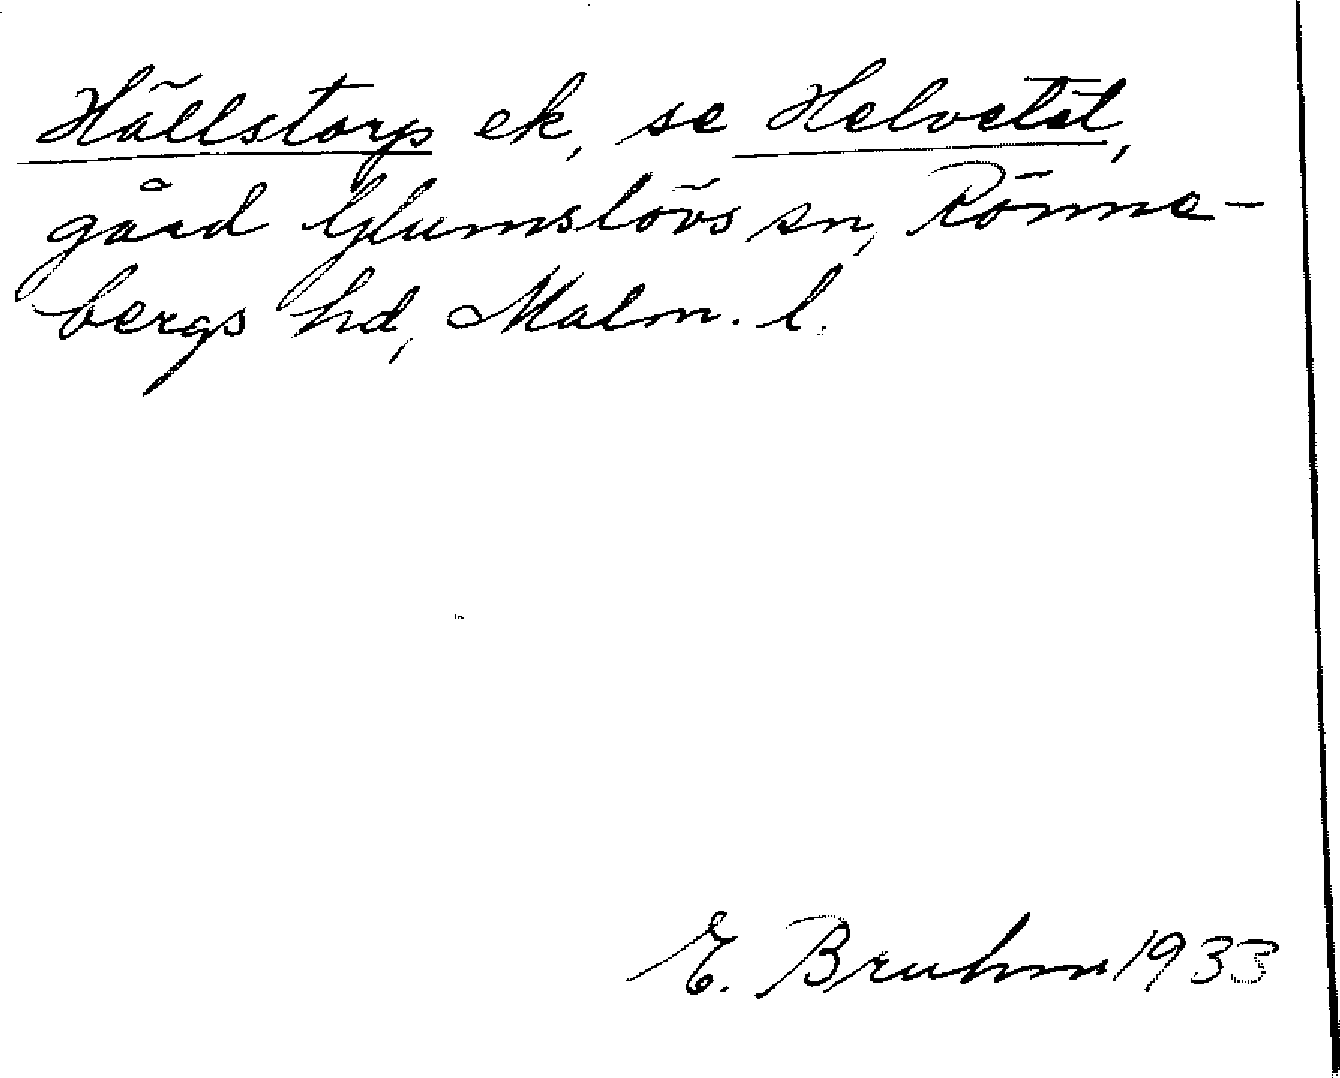 Hällstorps ek, se Helvetet,
gård Glumslövs sn, Rönne-
bergs hd, Malm. l.
E. Bruhn 1933